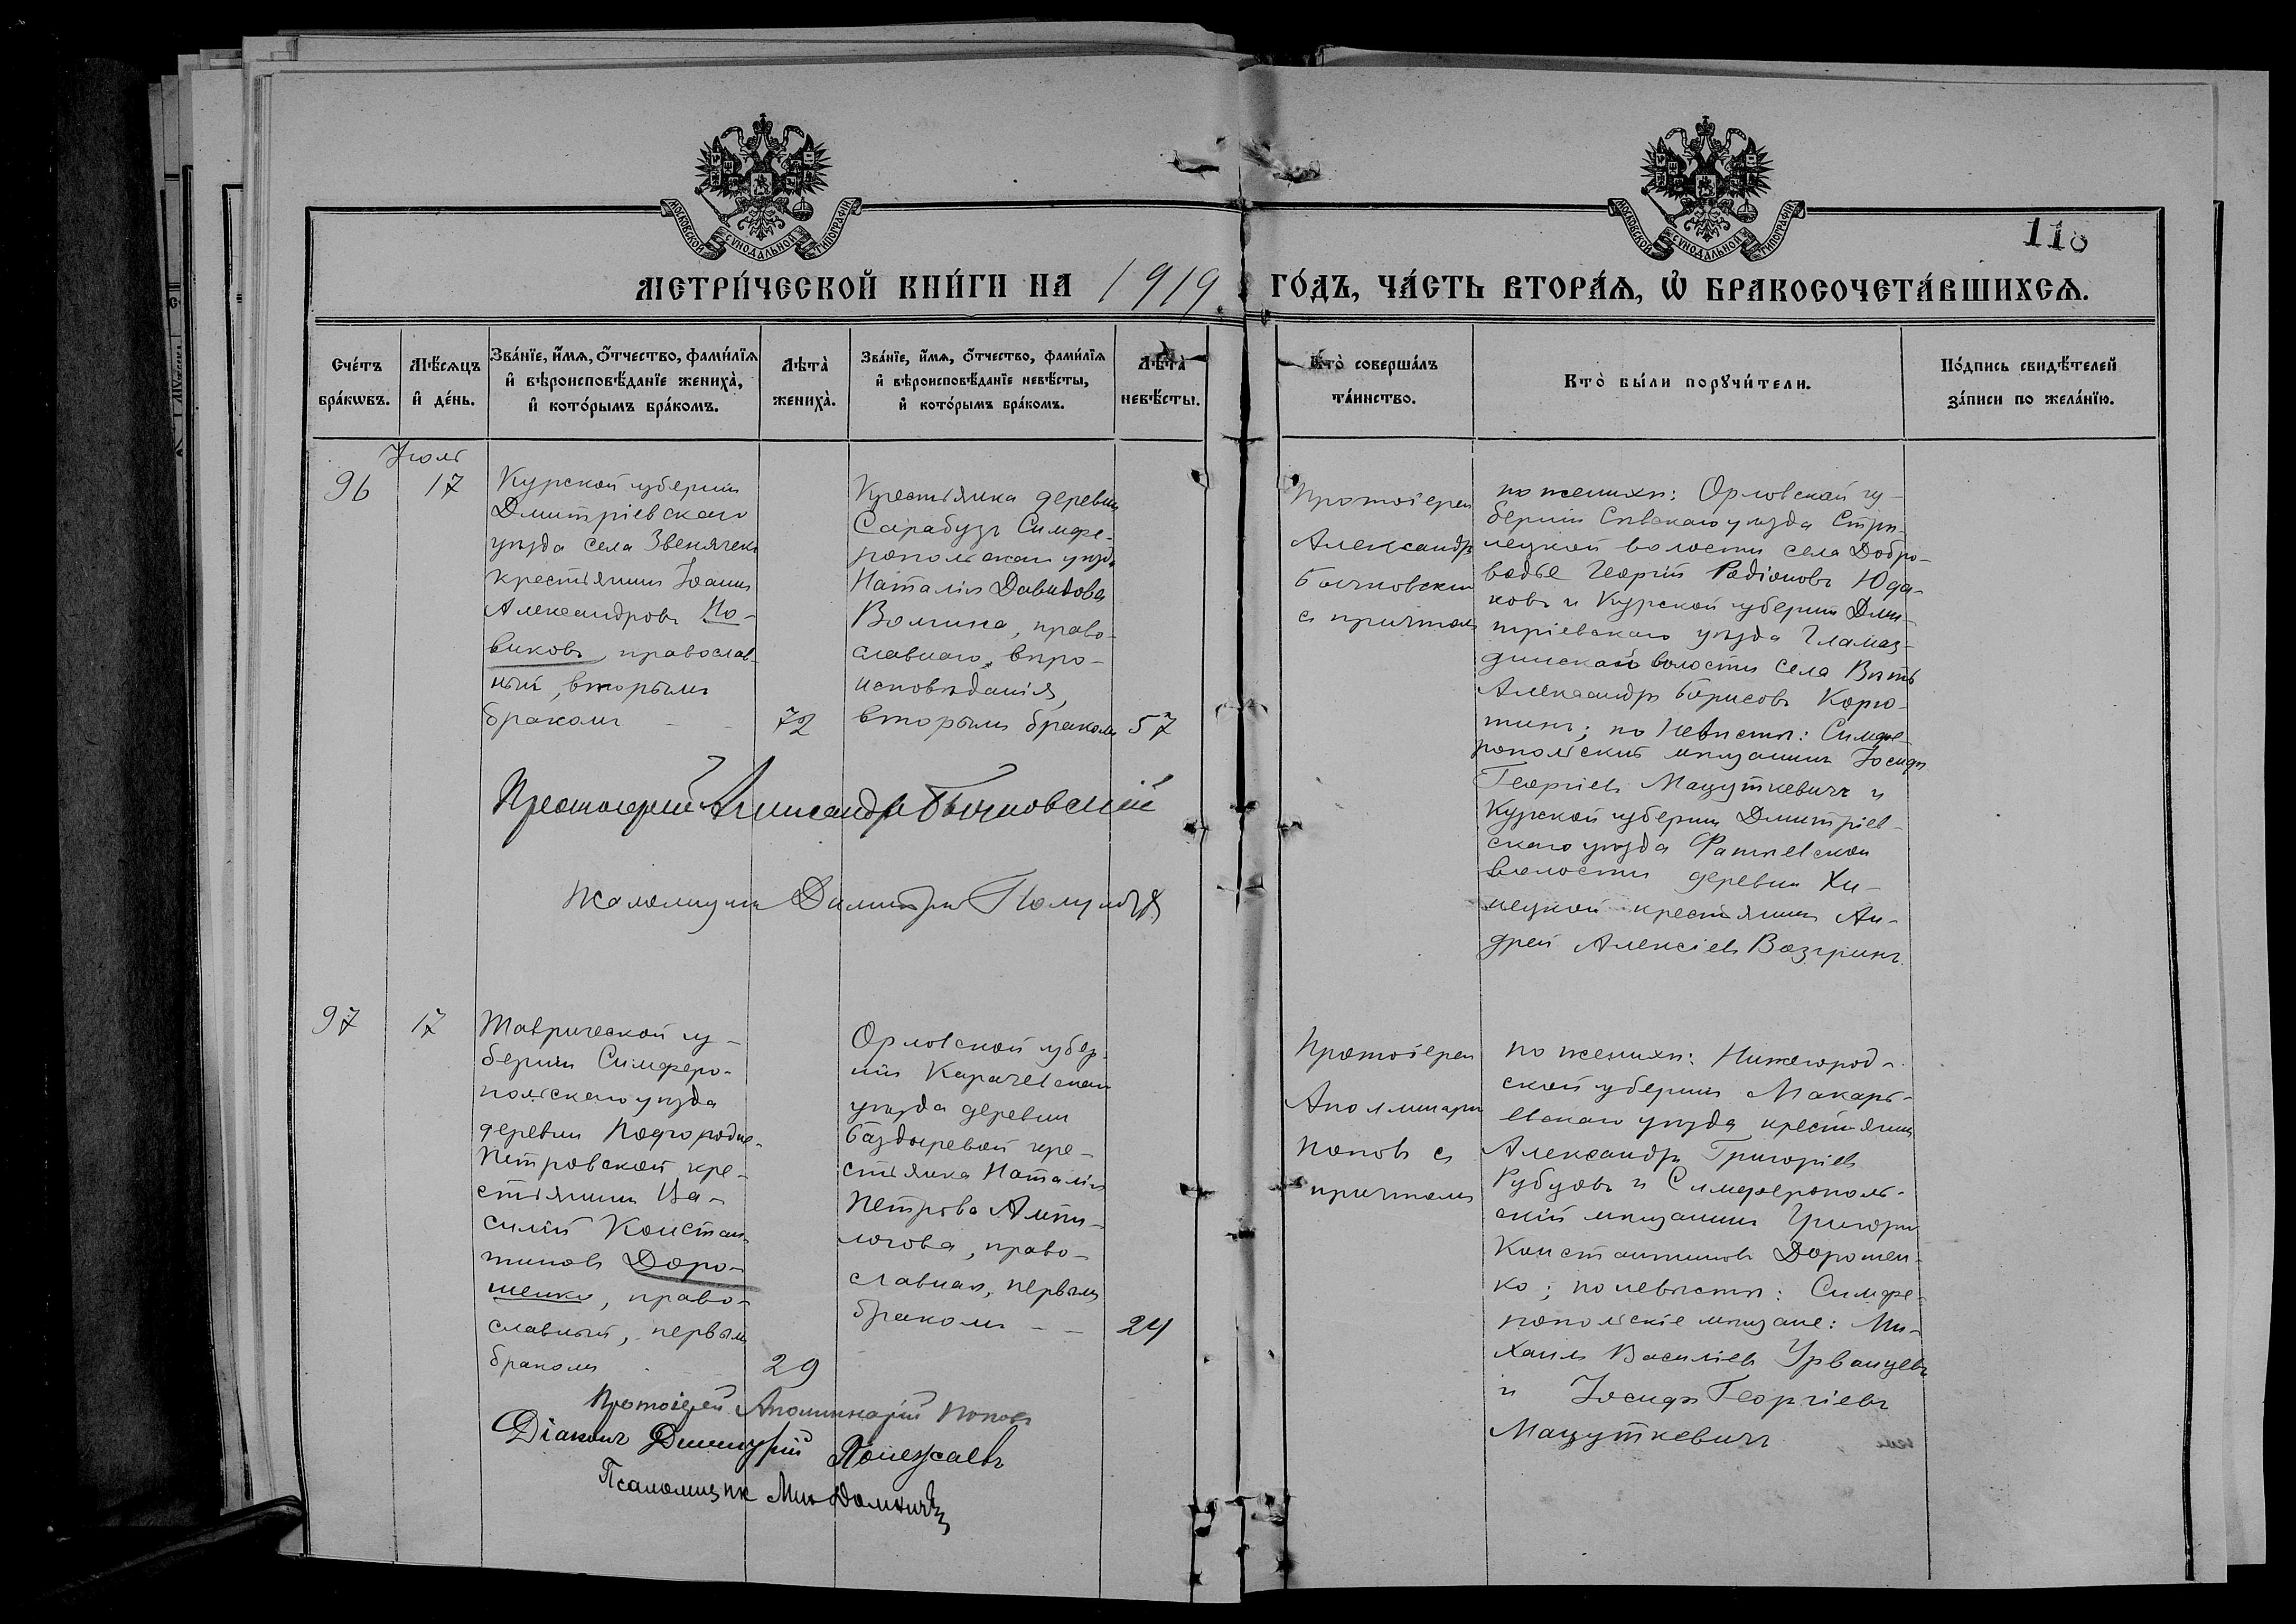 МОСКОВСКОЙ СѴНОДАЛЬНОЙ ТИПОГРАФІИ
МОСКОВСКОЙ СѴНОДАЛЬНОЙ ТИПОГРАФІИ
118
МЕТРИ́ЧЕСКОЙ КНИ́ГИ НА 1919 ГО́ДЪ, ЧА́СТЬ ВТОРА́Ѧ, Ѡ҆ БРАКОСОЧЕТА́ВШИХСѦ.
Сче́тъ бра́кѡвъ.
Мѣ́сѧцъ и҆ де́нь.
Зва́нїе, и҆́мѧ, ѻ҆́тчество, фами́лїѧ и҆ вѣроисповѣ́данїе жениха̀, и҆ кото́рымъ бра́комъ.
Лѣта̀ жениха̀.
Зва́нїе, и҆́мѧ, ѻ҆́тчество, фами́лїѧ и҆ вѣроисповѣ́данїе невѣ́сты, и҆ кото́рымъ бра́комъ.
Лѣта̀ невѣ́сты.
Кто̀ соверша́лъ та́инство.
Кто̀ бы́ли порꙋчи́тели.
По́дпись свидѣ́телей за́писи по жела́нїю.
Іюль
96
17
Курской губерніи
Дмитріевскаго
уѣзда села
крестьянинъ Іоаннъ
Александровъ Но-
виковъ, православ-
ный, вторымъ
бракомъ
72
Крестьянка деревни
Сарабузъ Симфе-
ропольскаго уѣзда
Наталія Давидова
Волгина, право-
славнаго вѣро-
исповѣданія,
вторымъ бракомъ
57
Протоіерей
Александръ
Бычковскій
съ причтомъ
по женихѣ: Орловской гу-
берніи Сѣвскаго уѣзда Стрѣ-
лецкой волости села Добро-
водье Георгій Родіоновъ Юда-
ковъ и Курской губерніи Дми-
тріевскаго уѣзда Гламаз-
динской волости села Вѣть
Александръ Борисовъ Корю-
тинъ; по невѣстѣ: Симфе-
ропольскій мѣщанинъ Іосифъ
Георгіевъ Мацуткевичъ и
Курской губерніи Дмитріев-
скаго уѣзда Фатѣевской
волости деревни Хи-
нецкой крестьянинъ Ан-
дрей Алексіевъ Возгринъ.
Протоіерей Александръ Бычковскій
Псаломщикъ Димитрій
97
17
Таврической гу-
берніи Симферо-
польскаго уѣзда
деревни Подгородне-
Петровской кре-
стьянинъ Ва-
силій Констан-
тиновъ Доро-
шенко, право-
славный, первымъ
бракомъ
29
Орловской губер-
ніи Карачевскаго
уѣзда деревни
Баздыревой кре-
стьянка Наталія
Петрова Ампи-
логова, право-
славная, первымъ
бракомъ
24
Протоіерей
Аполлинарій
Поповъ съ
причтомъ
по женихѣ: Нижегород-
ской губерніи Макарь-
евскаго уѣзда крестьянинъ
Александръ Григоріевъ
Рубцовъ и Симферополь-
скій мѣщанинъ Григорій
Константиновъ Дорошен-
ко; по невѣстѣ: Симфе-
ропольскіе мѣщане: Ми-
хаилъ Василіевъ Урванцевъ
и Іосифъ Георгіевъ
Мацуткевичъ
Протоіерей Аполлинарій Поповъ
Діаконъ Димитрій Полежаевъ
Псаломщик